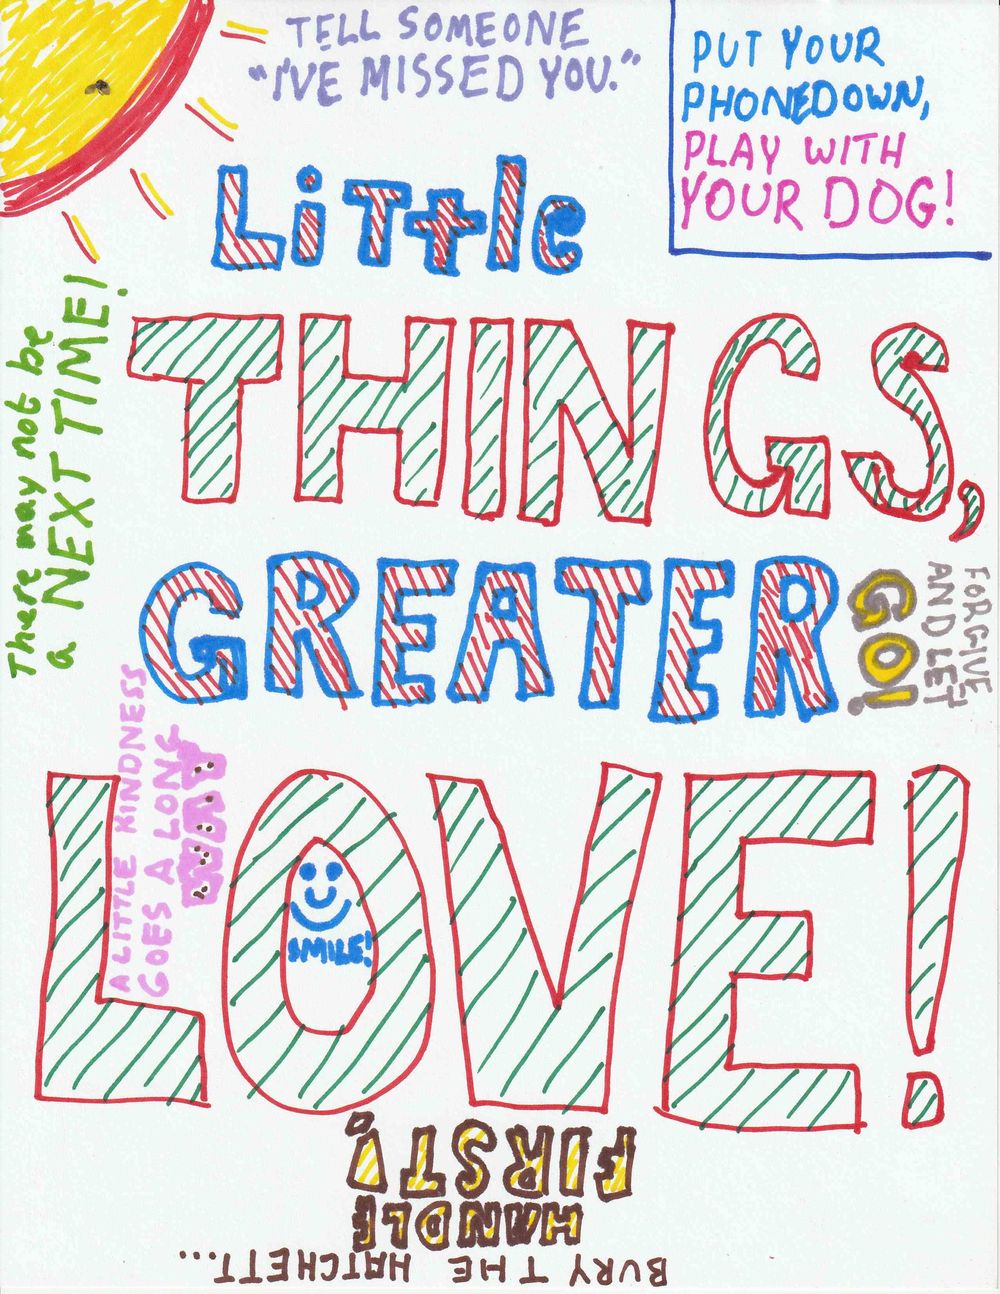 TELL SOMEONE
"I'VE MISSED YOU."
PUT YOUR
PHONEDOWN,
PLAY WITH
YOUR DOG!
LiTtle
THINGS,
GREATER
LOVE!
There may not be
a NEXT TIME!
FORGIVE
AND LET
GO!
A LITTLE KINDNESS
GOES A LONG
WAY
SMILE!
BURY THE HATCHETT...
HANDLE
FIRST!